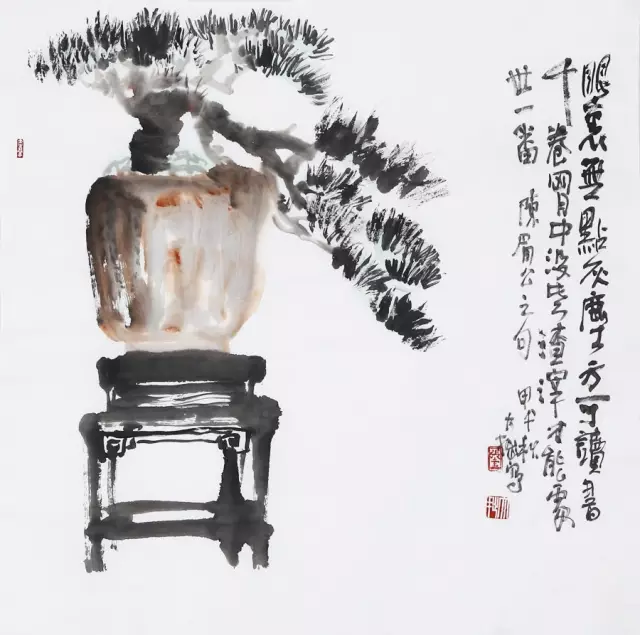 眼裏無點灰塵方可讀書
千卷胸中沒些渣滓才能處
世一番 陳眉公之句 甲午秋
寫